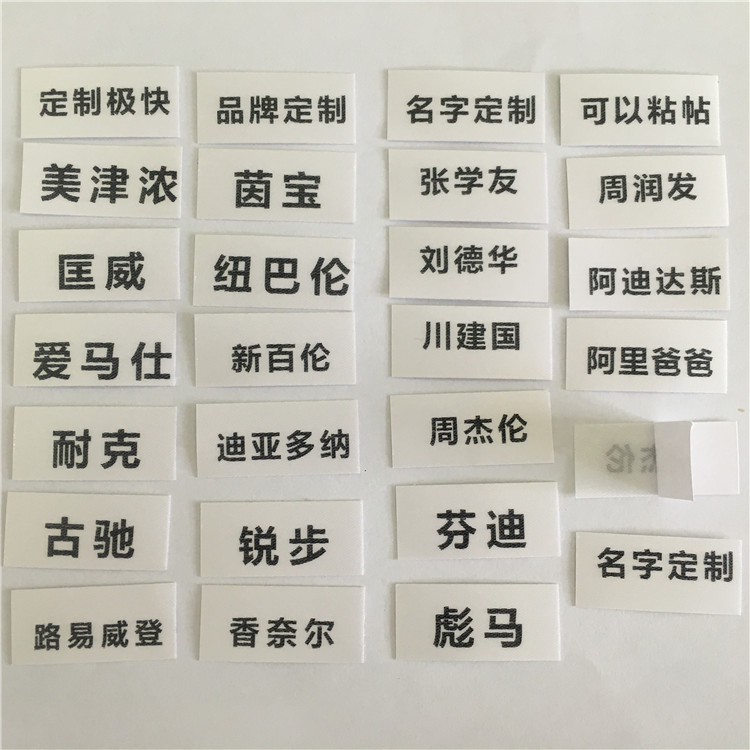 定制极快
品牌定制
名字定制
可以粘帖
美津浓
茵宝
张学友
周润发
匡威
纽巴伦
刘德华
阿迪达斯
爱马仕
新百伦
川建国
阿里爸爸
耐克
迪亚多纳
周杰伦
杰伦
古驰
锐步
芬迪
名字定制
路易威登
香奈尔
彪马